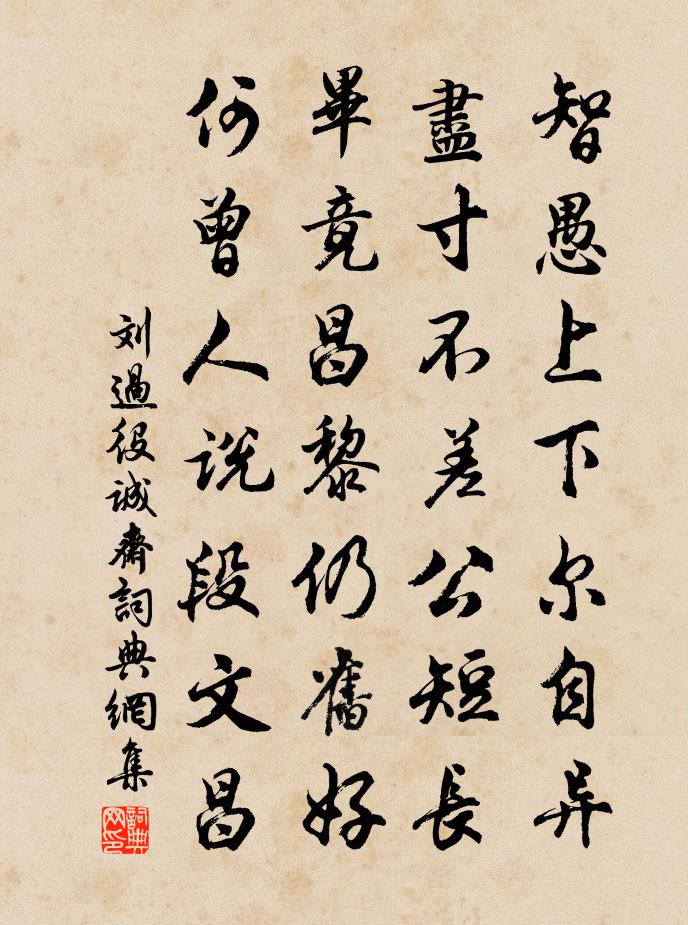 智愚上下尔自异
盡寸不差公短長
畢竟昌黎仍舊好
何曾人説段文昌
刘過役誠齋詞典網集
詞典網印